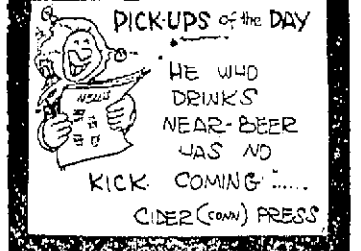 PICK-UPS of the DAY
NEWS
HE WHO
DRINKS
NEAR-BEER
HAS NO
KICK COMING.....
CIDER (CONN) PRESS